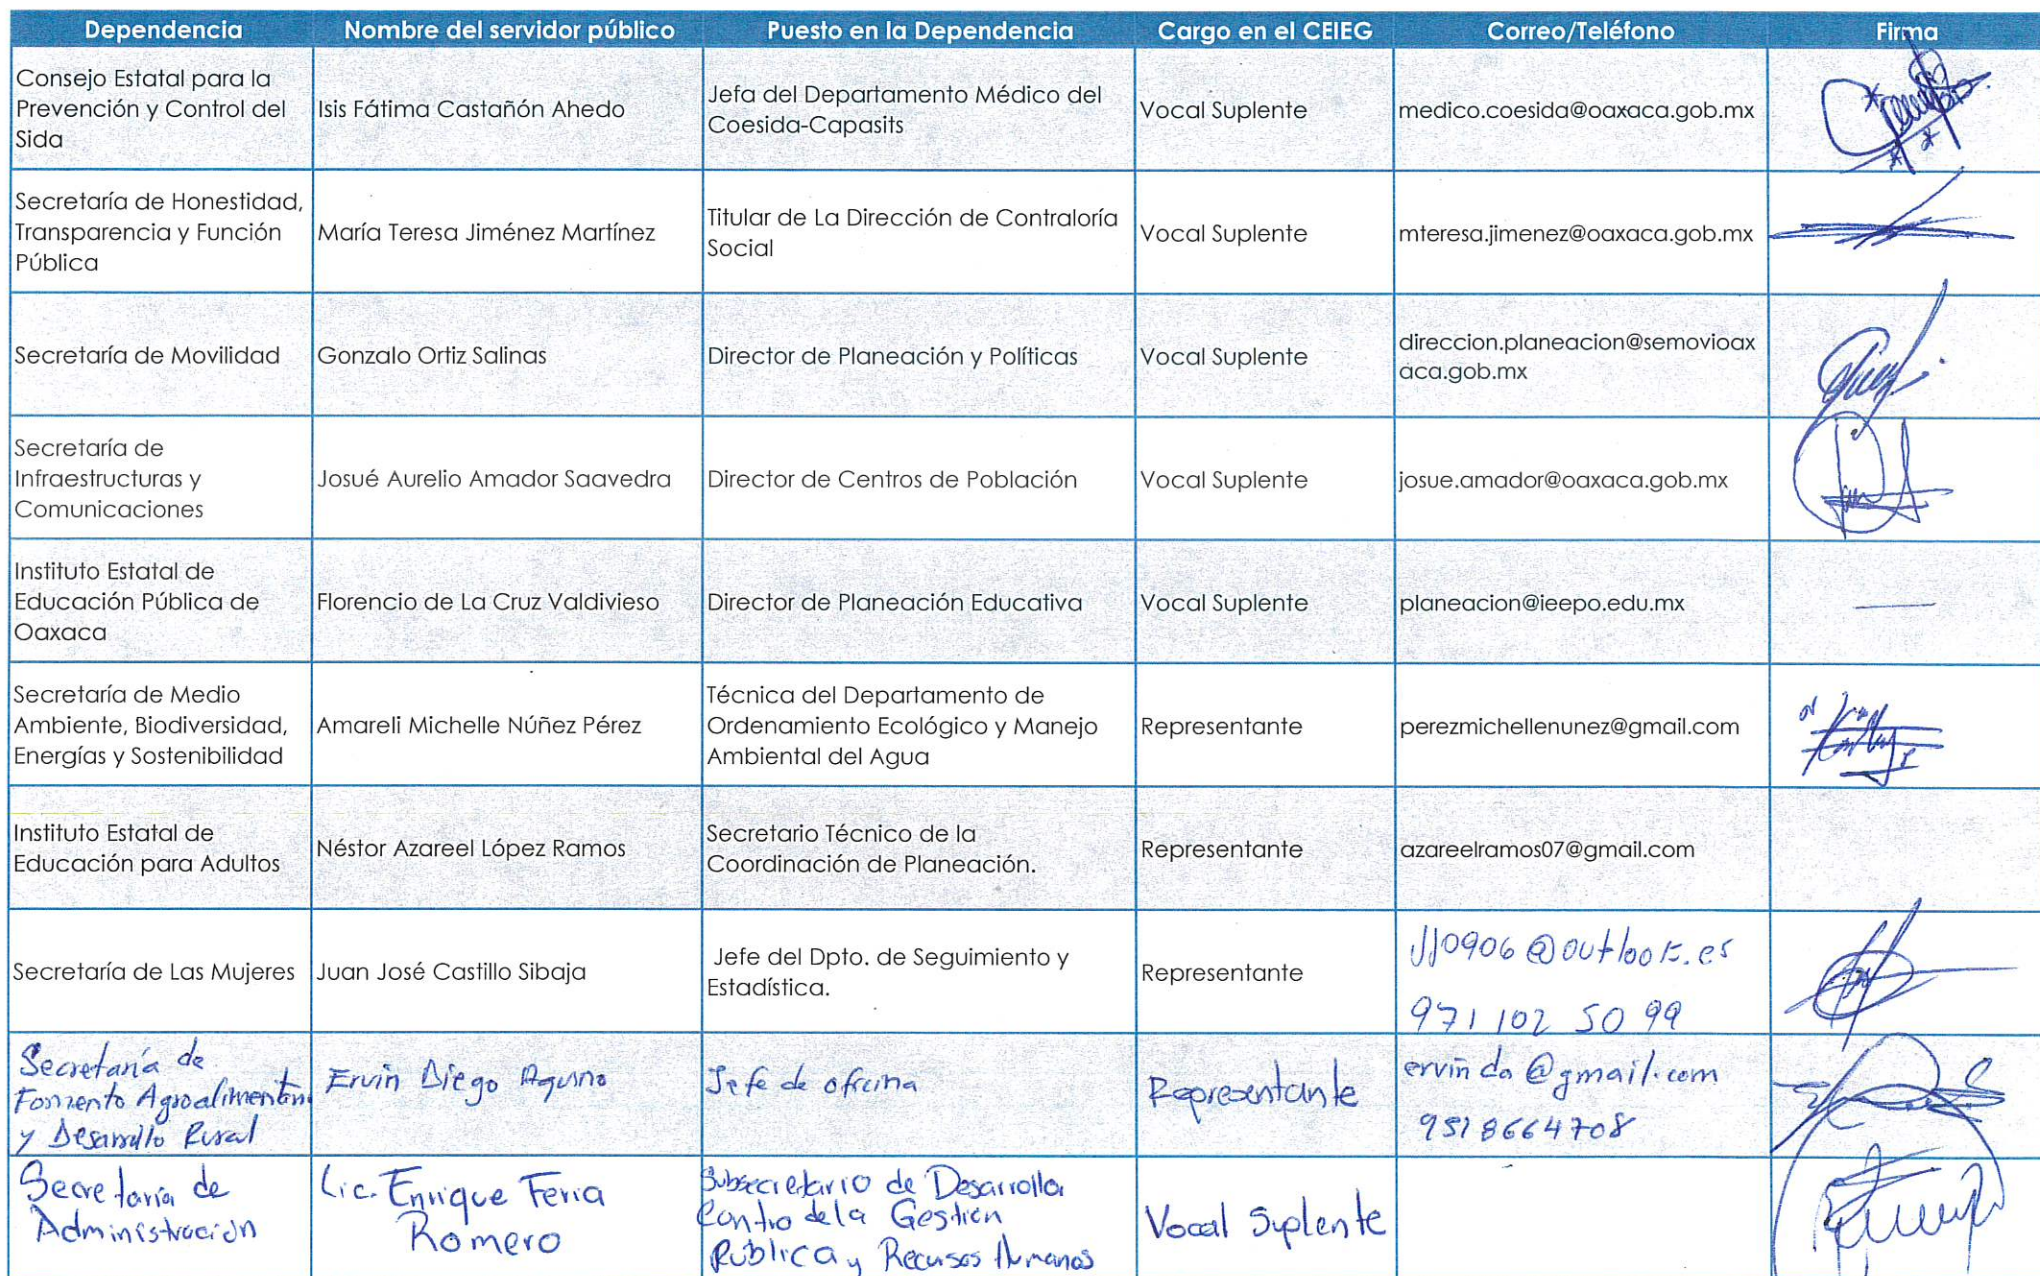 Dependencia Nombre del servidor público Puesto en la Dependencia Cargo en el CEIEG Correo/Teléfono Firma
Consejo Estatal para la
Prevención y Control del
Sida
Isis Fátima Castañón Ahedo
Jefa del Departamento Médico del
Coesida-Capasits
Vocal Suplente
medico.coesida@oaxaca.gob.mx
Secretaría de Honestidad,
Transparencia y Función
Pública
María Teresa Jiménez Martínez
Titular de La Dirección de Contraloría
Social
Vocal Suplente
mteresa.jimenez@oaxaca.gob.mx
Secretaría de Movilidad
Gonzalo Ortiz Salinas
Director de Planeación y Políticas
Vocal Suplente
direccion.planeacion@semovioax
aca.gob.mx
Secretaría de
Infraestructuras y
Comunicaciones
Josué Aurelio Amador Saavedra
Director de Centros de Población
Vocal Suplente
josue.amador@oaxaca.gob.mx
Instituto Estatal de
Educación Pública de
Oaxaca
Florencio de La Cruz Valdivieso
Director de Planeación Educativa
Vocal Suplente
planeacion@ieepo.edu.mx
Secretaría de Medio
Ambiente, Biodiversidad,
Energías y Sostenibilidad
Amareli Michelle Núñez Pérez
Técnica del Departamento de
Ordenamiento Ecológico y Manejo
Ambiental del Agua
Representante
perezmichellenunez@gmail.com
Instituto Estatal de
Educación para Adultos
Néstor Azareel López Ramos
Secretario Técnico de la
Coordinación de Planeación.
Representante
azareelramos07@gmail.com
Secretaría de Las Mujeres
Juan José Castillo Sibaja
Jefe del Dpto. de Seguimiento y
Estadística.
Representante
jj0906@outlook.es
971 102 50 99
Secretaría de
Fomento
y Desarrollo Rural
Ervin Diego Aquino
Jefe de oficina
Representante
ervin da@gmail.com
9518664708
Secretaría de
Administración
Lic. Enrique Feria
Romero
Subsecretario de Desarrollo
de la Gestión
Pública y Recursos Humanos
Vocal Suplente